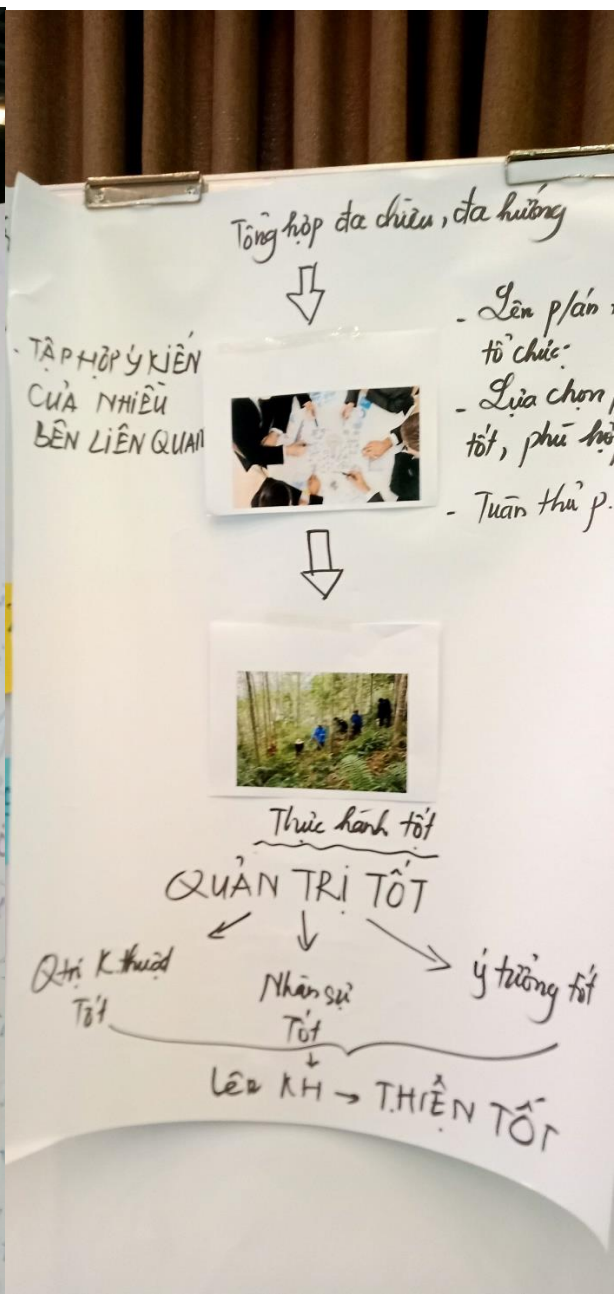 Tổng hợp đa chiều, đa hướng
- TẬP HỢP Ý KIẾN
CỦA NHIỀU
BÊN LIÊN QUAN
- Lên p/án
tổ chức.
- Lựa chọn
tốt, phù hợ
- Tuân thủ p.
Thực hành tốt
QUẢN TRỊ TỐT
Qtrị K.thuật
Tốt
Nhân sự
Tốt
ý tưởng tốt
Lên KH → T.HIỆN TỐT